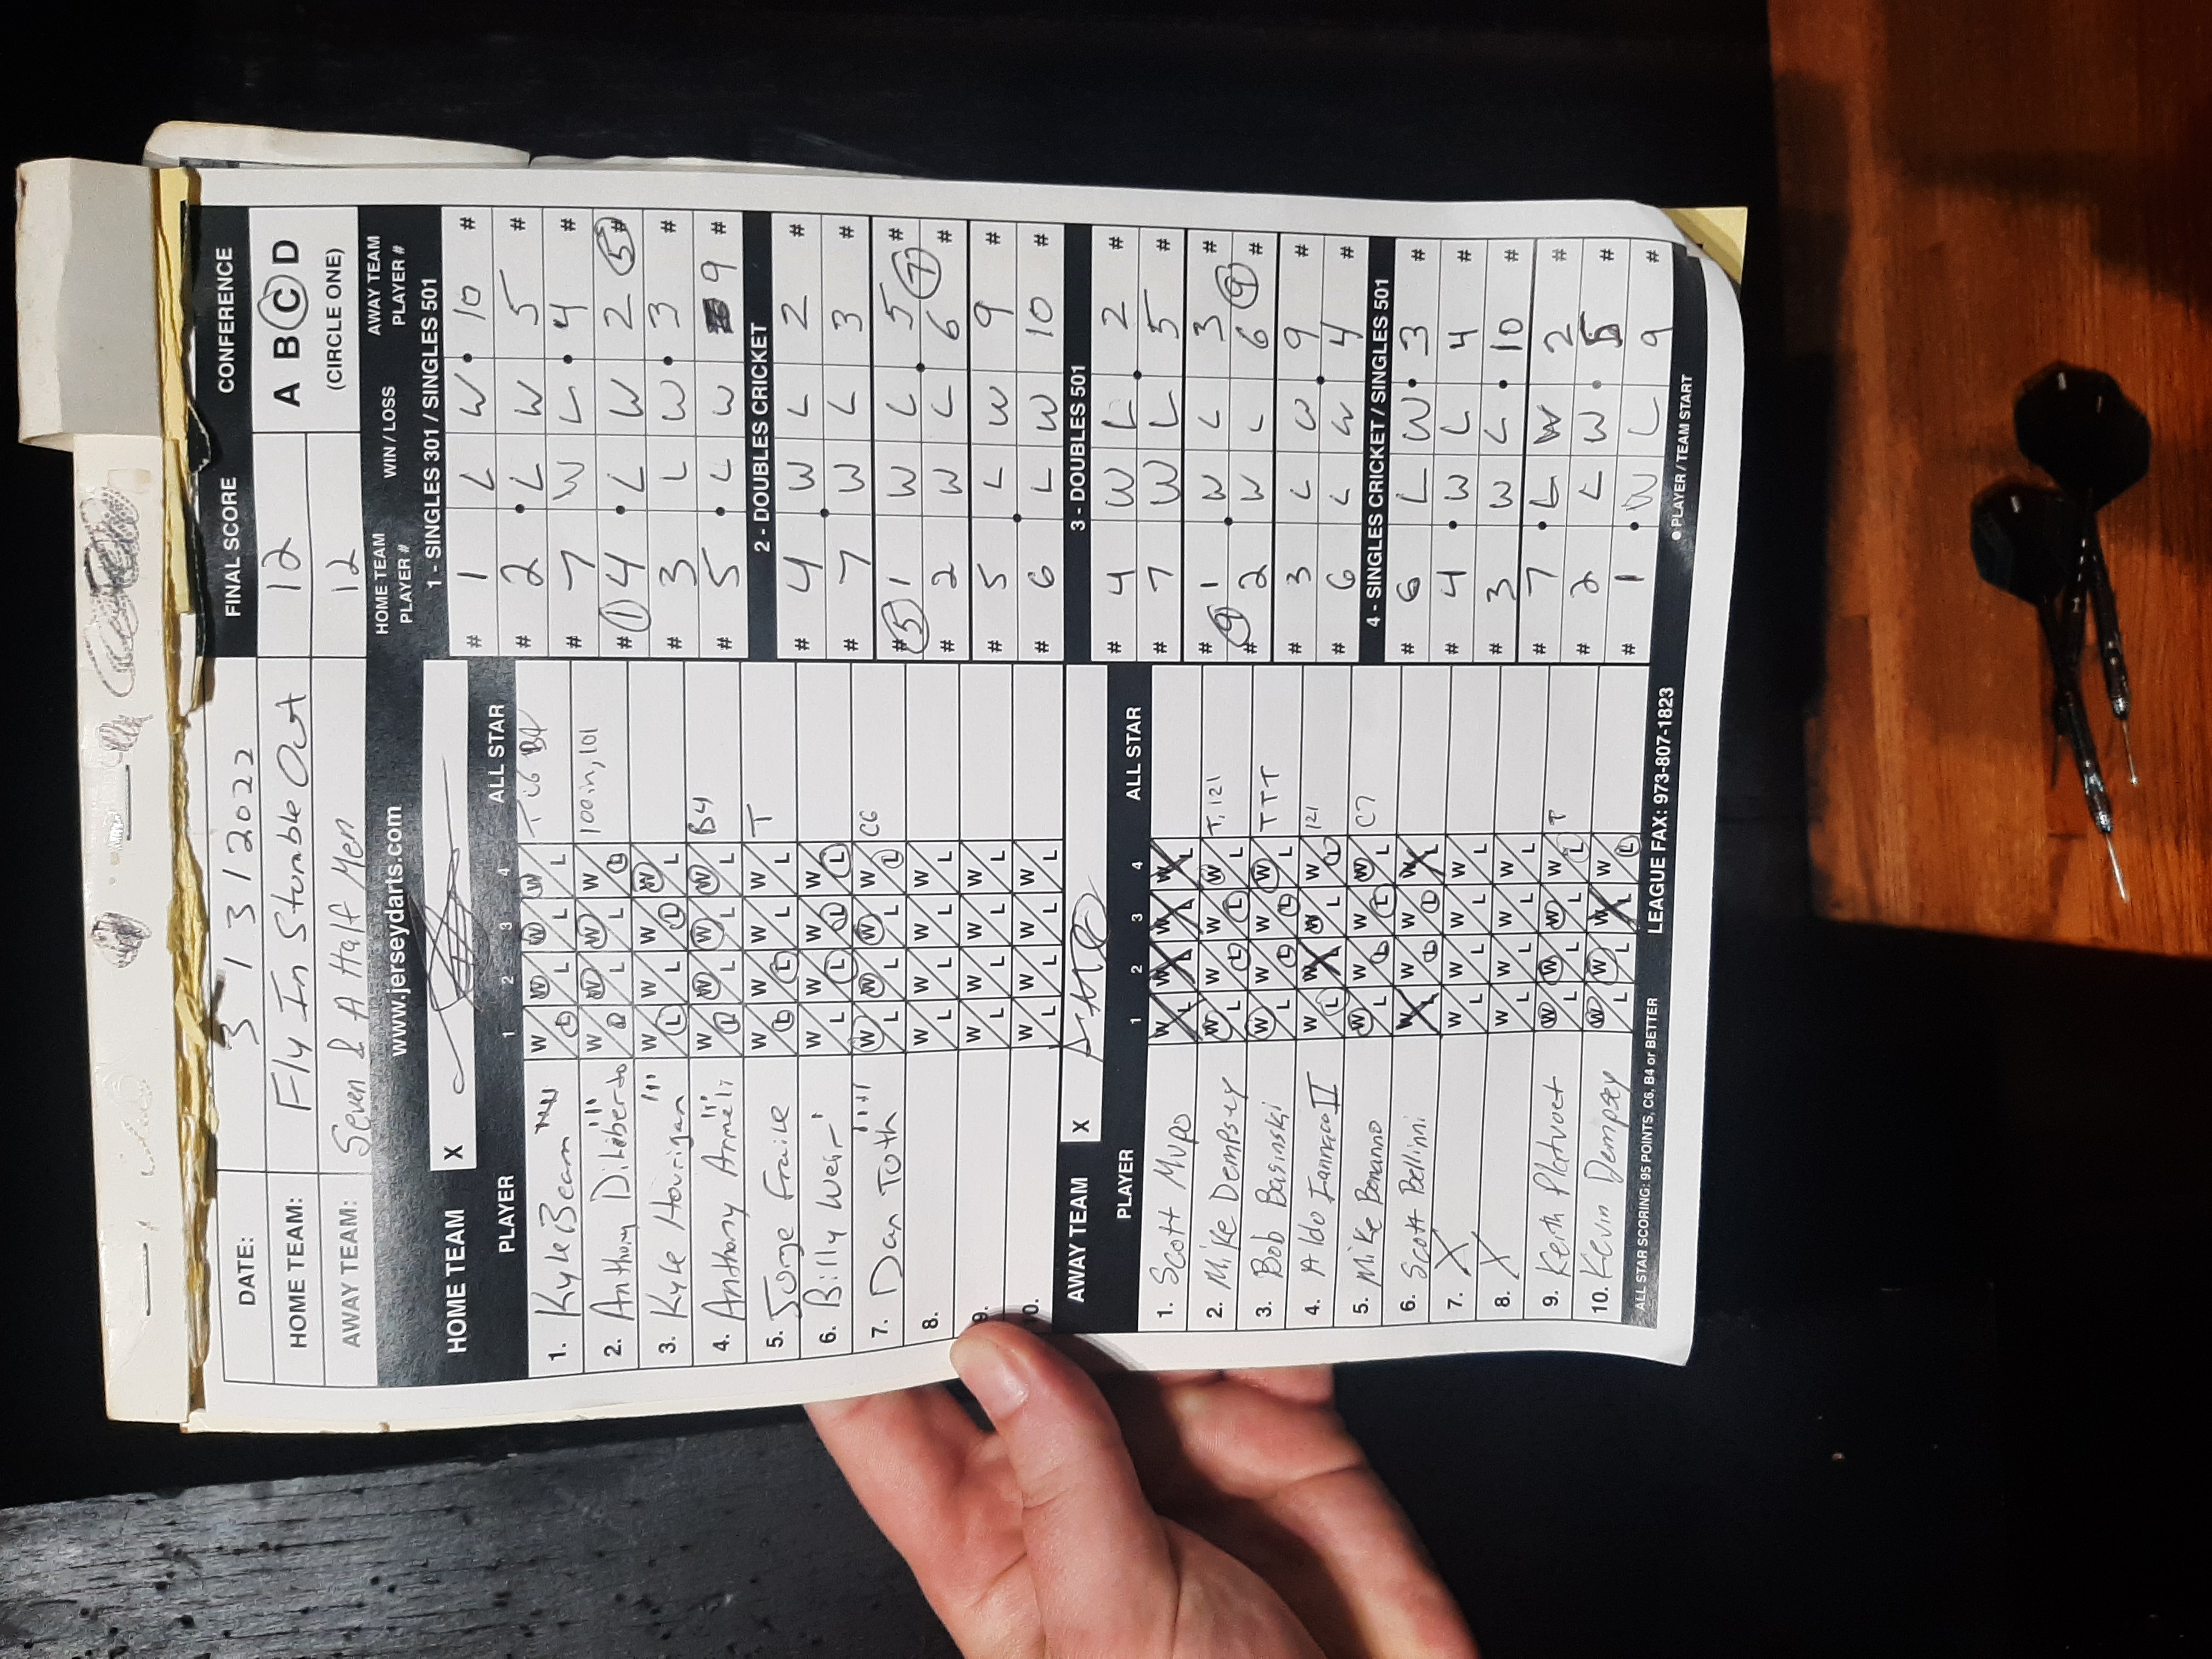 DATE: 3 1 3 1 2022 FINAL SCORE CONFERENCE
HOME TEAM: Fly In Stumble Out 12 A B C D
AWAY TEAM: Seven & A Half Men 12 (CIRCLE ONE)
www.jerseydarts.com
HOME TEAM X
PLAYER 1 2 3 4 ALL STAR
1. Kyle Beam W/L W/L W/L W/L T C6 B4
2. Anthony Diliberto W/L W/L W/L W/L 100in, 101
3. Kyle Hourigan W/L W/L W/L W/L
4. Anthony Armeli W/L W/L W/L W/L B4
5. Jorge Fraile W/L W/L W/L W/L T
6. Billy Weir W/L W/L W/L W/L
7. Dan Toth W/L W/L W/L W/L C6
8. W/L W/L W/L W/L
9. W/L W/L W/L W/L
10. W/L W/L W/L W/L
AWAY TEAM X
PLAYER 1 2 3 4 ALL STAR
1. Scott Mupo W/L W/L W/L W/L
2. Mike Dempsey W/L W/L W/L W/L T, 121
3. Bob Basinski W/L W/L W/L W/L T T T
4. Aldo Iannacco II W/L W/L W/L W/L 121
5. Mike Bonanno W/L W/L W/L W/L C7
6. Scott Bellinni W/L W/L W/L W/L
7. X W/L W/L W/L W/L
8. X W/L W/L W/L W/L
9. Keith Platvoet W/L W/L W/L W/L T
10. Kevin Dempsey W/L W/L W/L W/L
ALL STAR SCORING: 95 POINTS, C6, B4 or BETTER LEAGUE FAX: 973-807-1823
HOME TEAM PLAYER # WIN / LOSS AWAY TEAM PLAYER #
1 - SINGLES 301 / SINGLES 501
# 1 L W 10 #
# 2 L W 5 #
# 7 W L 4 #
# 1 4 L W 2 5 #
# 3 L W 3 #
# 5 L W 9 #
2 - DOUBLES CRICKET
# 4 W L 2 #
# 7 W L 3 #
# 5 1 W L 5 7 #
# 2 W L 6 #
# 5 L W 9 #
# 6 L W 10 #
3 - DOUBLES 501
# 4 W L 2 #
# 7 W L 5 #
# 9 1 W L 3 #
# 2 W L 6 9 #
# 3 L W 9 #
# 6 L W 4 #
4 - SINGLES CRICKET / SINGLES 501
# 6 L W 3 #
# 4 W L 4 #
# 3 W L 10 #
# 7 L W 2 #
# 2 L W 5 #
# 1 W L 9 #
● PLAYER / TEAM START